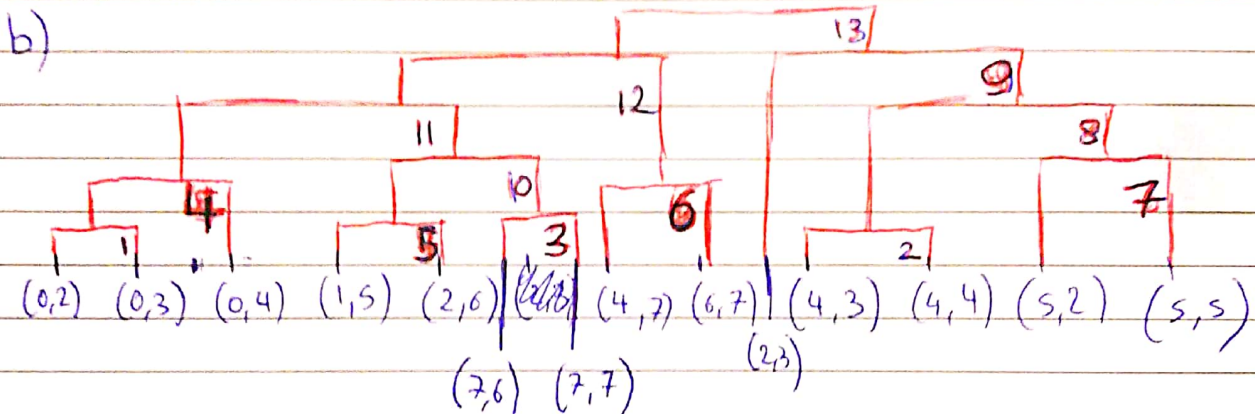 b)
13
9
12
11
8
10
4
6
7
1
5
3
2
(0,2) (0,3) (0,4) (1,5) (2,6) (4,7) (6,7) (4,3) (4,4) (5,2) (5,5)
(7,6) (7,7) (2,3)